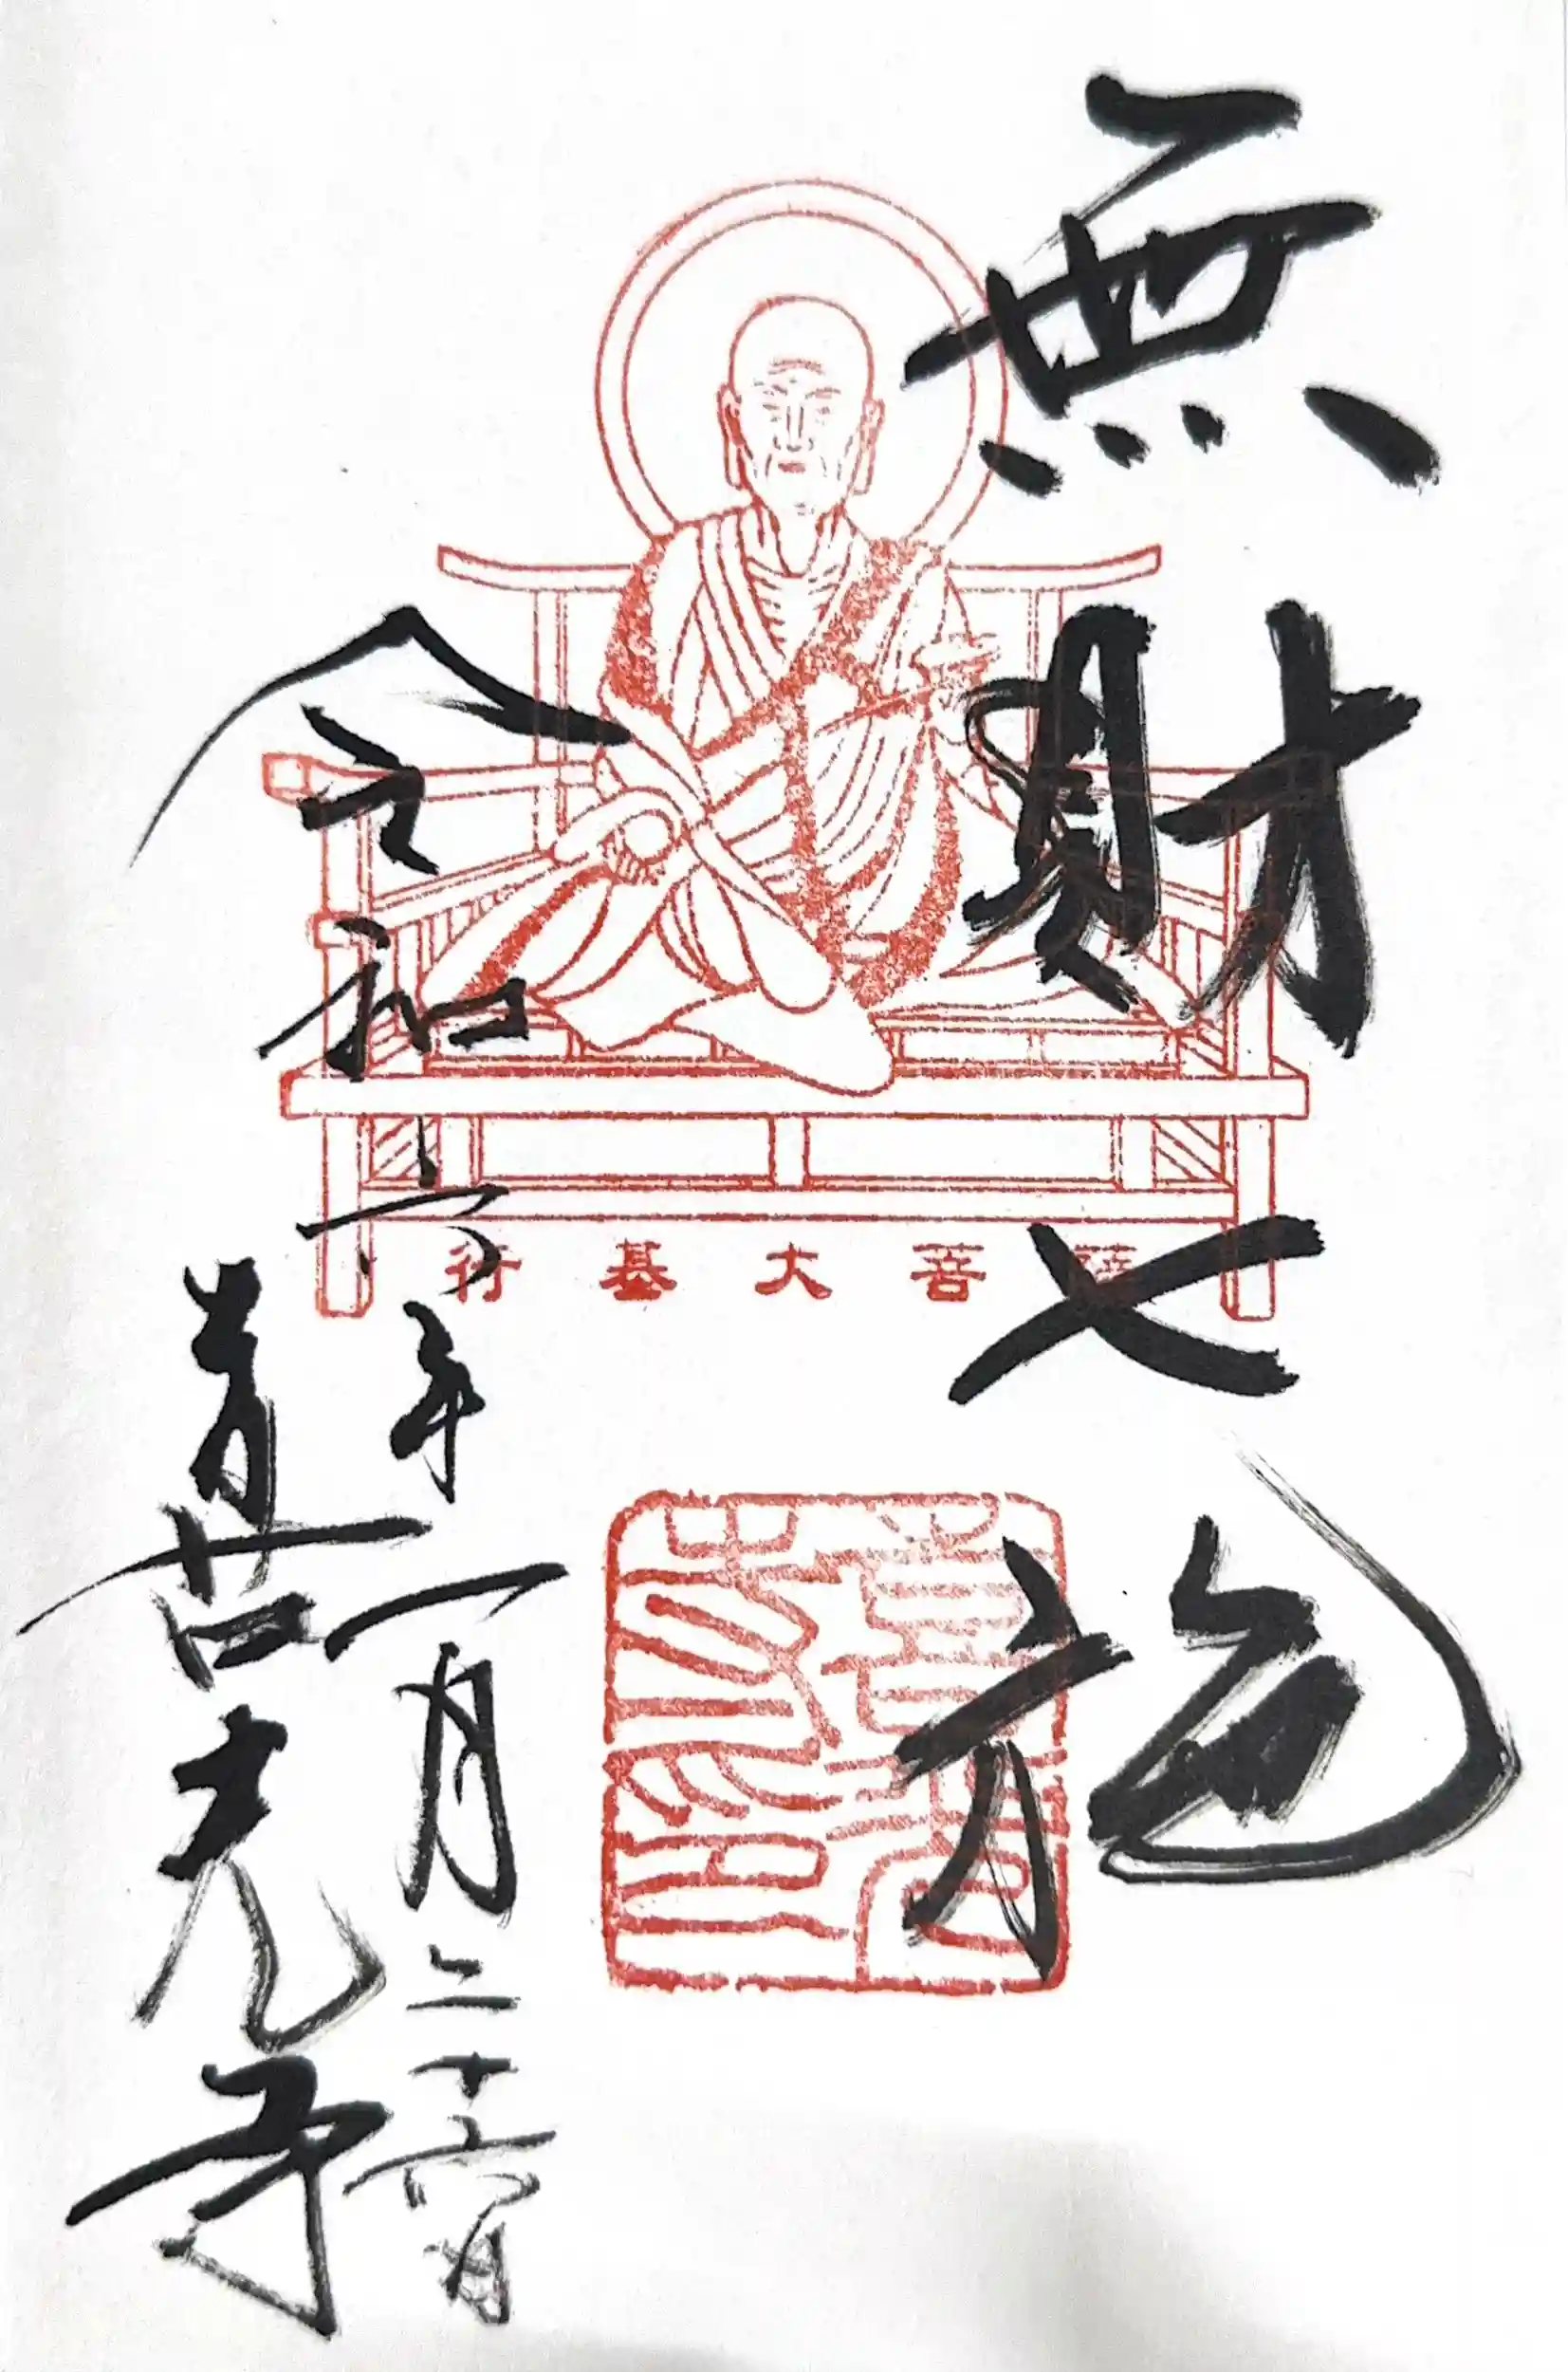 無財七施
行基大菩薩
令和六年一月二十六日
喜光寺